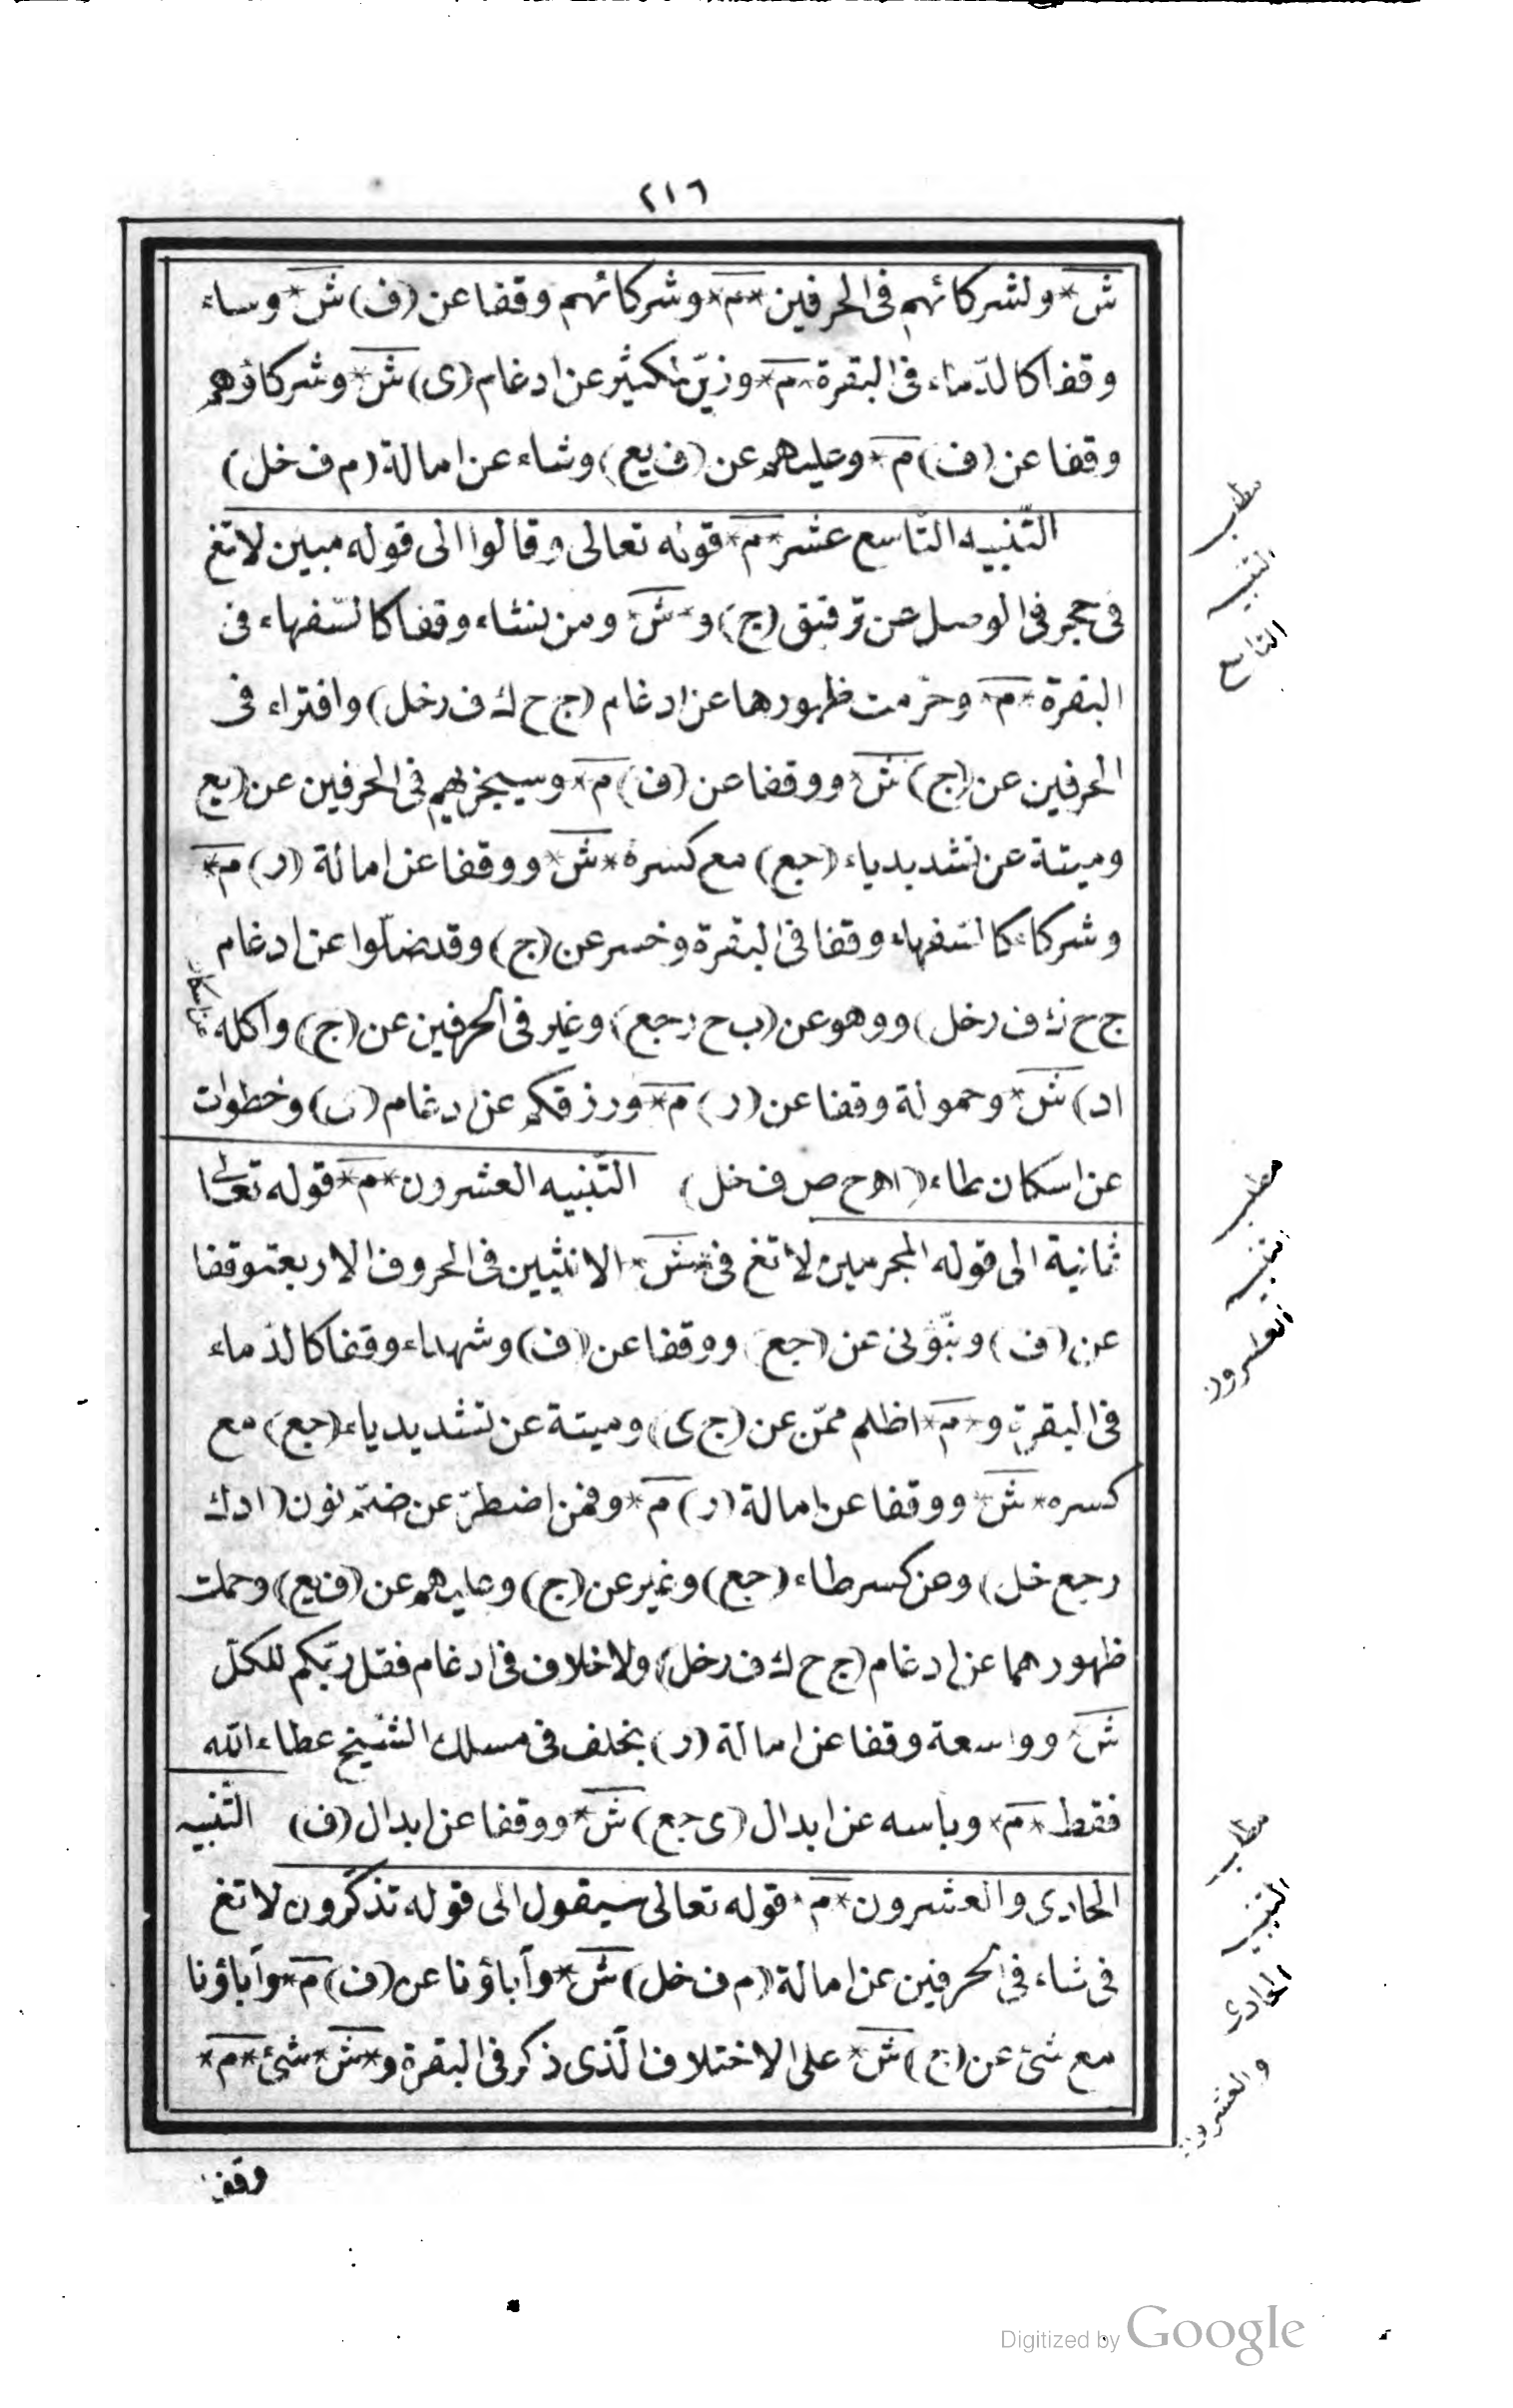 ٢١٦
ش* ولشركائهم فى الحرفين *م* وشركائهم وقفا عن (ف) ش* وساء
وقفا كالدّماء فى البقرة *م* وزيّن لكثير عن ادغام (ى) ش* وشركاؤهم
وقفا عن (ف) م* وعليهم عن (ف يع) وشاء عن امالة (م ف خل)
التّنبيه التّاسع عشر *م* قوله تعالى وقالوا الى قوله مبين لاتغ
فى حجر فى الوصل عن ترقيق (ج) و *ش* ومن نشاء وقفا كالسّفهاء فى
البقرة *م* وحرّمت ظهورها عن ادغام (ج ح ك ف ر خل) وافتراء فى
الحرفين عن (ج) ش* ووقفا عن (ف) م* وسيجزيهم فى الحرفين عن (يع
وميتة عن تشديد ياء (جع) مع كسره *ش* ووقفا عن امالة (ر) م*
وشركاء كالسّفهاء وقفا فى البقرة وخسر عن (ج) وقد ضلّوا عن ادغام
ج ح ك ف ر خل) ووهو عن (ب ح ر جع) وغير فى الحرفين عن (ج) واكله
عن اسكان
اد) ش* وحمولة وقفا عن (ر) م* ورزقكم عن ادغام (ى) وخطوات
عن اسكان طاء (ا ه ح ص ف خل) التّنبيه العشرون *م* قوله تعالى
ثمانية الى قوله المجرمين لاتغ فى *ش* الانثيين فى الحروف الاربعة وقفا
عن (ف) ونبّؤنى عن (جع) ووقفا عن (ف) وشهداء وقفا كالدّماء
فى البقرة و *م* اظلم ممّن عن (ج ى) وميتة عن تشديد ياء (جع) مع
كسره *ش* ووقفا عن امالة (ر) م* وفمن اضطرّ عن ضمّ نون (ا د ك
ر جع خل) وعن كسر طاء (جع) وغير عن (ج) وعليهم عن (ف يع) وحملت
ظهورهما عن ادغام (ج ح ك ف ر خل) ولاخلاف فى ادغام فقل ربّكم للكلّ
ش* وواسعة وقفا عن امالة (ر) بخلف فى مسلك الشّيخ عطاء الله
فقط *م* وباسه عن ابدال (ى جع) ش* ووقفا عن ابدال (ف) التّنبيه
الحادى والعشرون *م* قوله تعالى سيقول الى قوله تذكّرون لاتغ
فى شاء فى الحرفين عن امالة (م ف خل) ش* وآباؤنا عن (ف) م* وآباؤنا
مع شئ عن (ج) ش* على الاختلاف الّذى ذكر فى البقرة و *ش* شئ *م*
وقفا
مطلب
التنبيه
التاسع
مطلب
تنبيه
العشرون
مطلب
التنبيه
الحادى
والعشرون
Digitized by Google